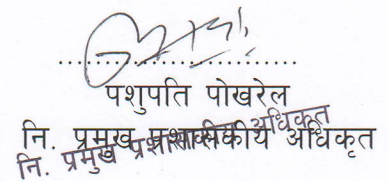 पशुपति पोखरेल
नि. प्रमुख प्रशासकीय अधिकृत
नि. प्रमुख प्रशासकीय अधिकृत